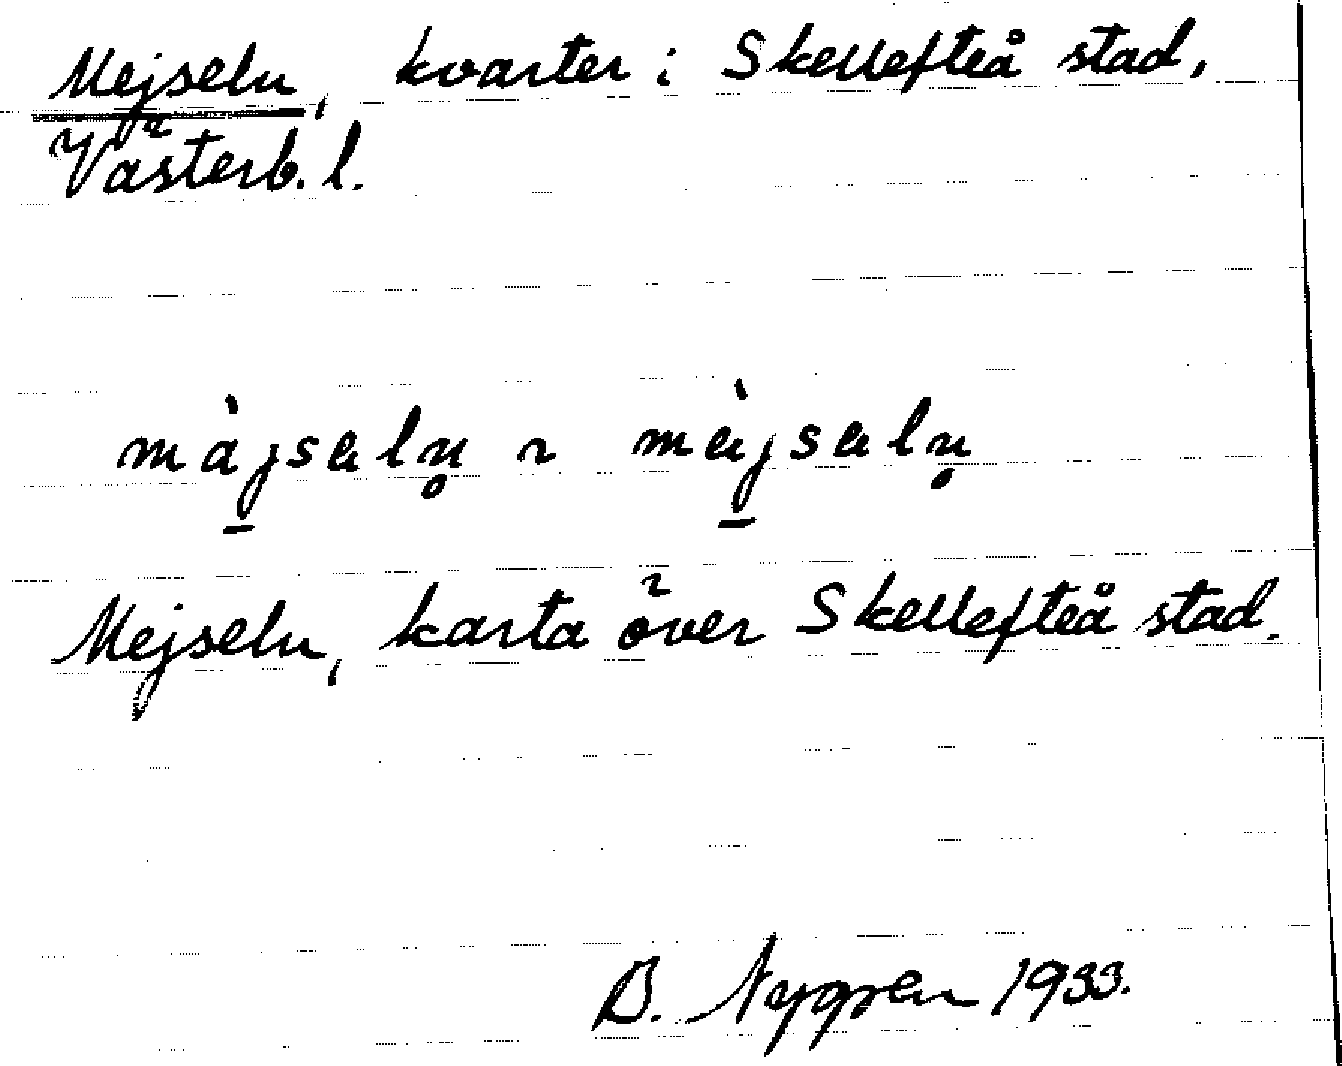 Mejseln, kvarter i Skellefteå stad,
Västerb. l.
màj̱seln̥ ~ mèj̱seln̥
Mejseln, karta över Skellefteå stad.
B. Nygren 1933.